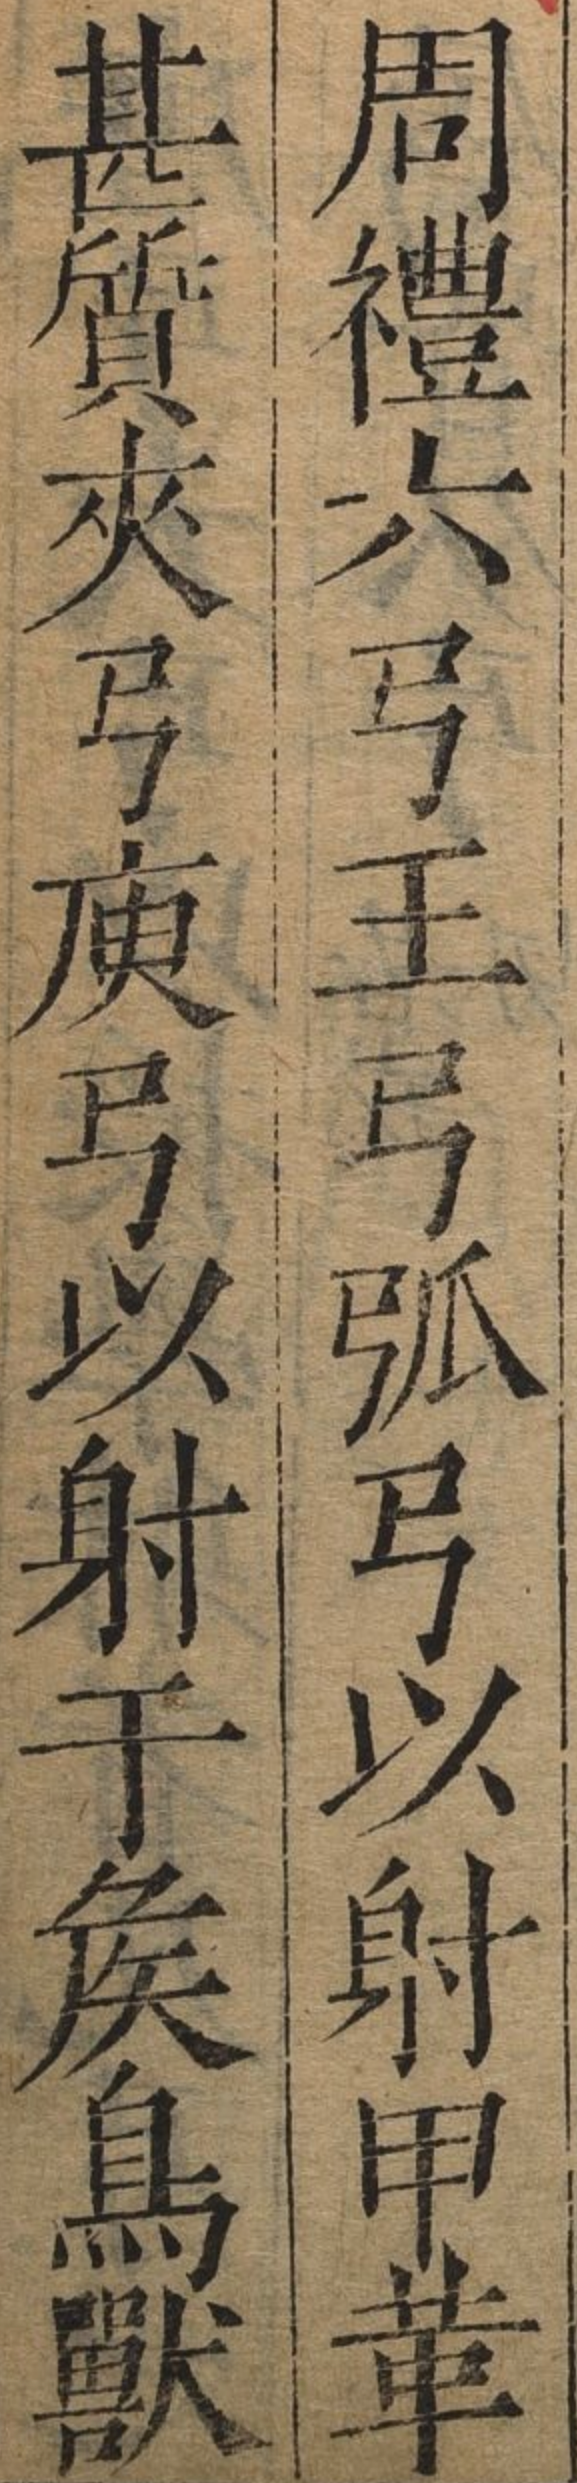 周禮六弓王弓弧弓以射甲革
甚質夾弓庾弓以射干矦鳥獸